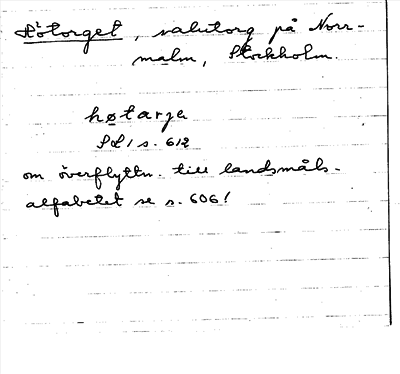 Hötorget, salutorg på Norr-
malm, Stockholm.
høtarje
SL 1 s. 612
om överflyttn. till landsmåls-
alfabetet se s. 606!